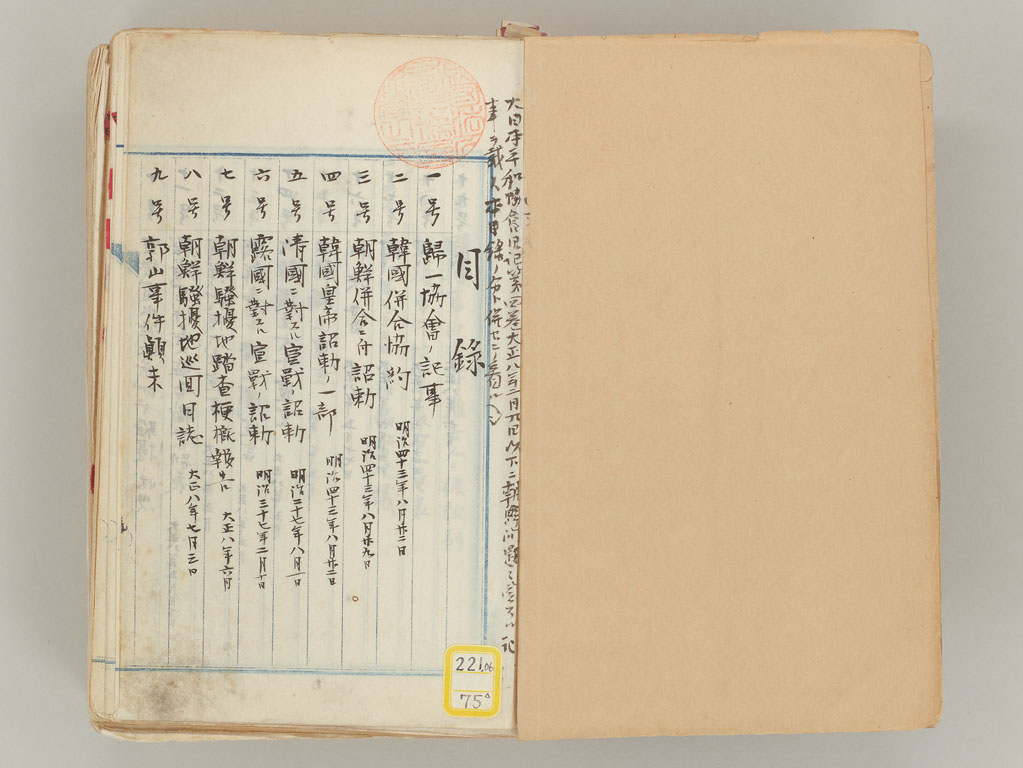 大日本平和協會日記第四卷大正八年二月九日以下ニ朝鮮問題ニ干スル記
事ヲ載ス本目錄ノ分ト併セテ看ル
目錄
一号 歸一協會ノ記事
二号 韓國併合協約 明治四十三年八月廿二日
三号 朝鮮併合ニ付詔勅 明治四十三年八月廿九日
四号 韓國皇帝詔勅ノ一部 明治四十三年八月廿二日
五号 清國ニ對スル宣戰ノ詔勅 明治二十七年八月一日
六号 露國ニ對スル宣戰ノ詔勅 明治三十七年二月十日
七号 朝鮮騷擾地踏査梗概報告 大正八年六月
八号 朝鮮騷擾地巡回日誌 大正八年七月三日
九号 郭山事件顛末
221.06
75